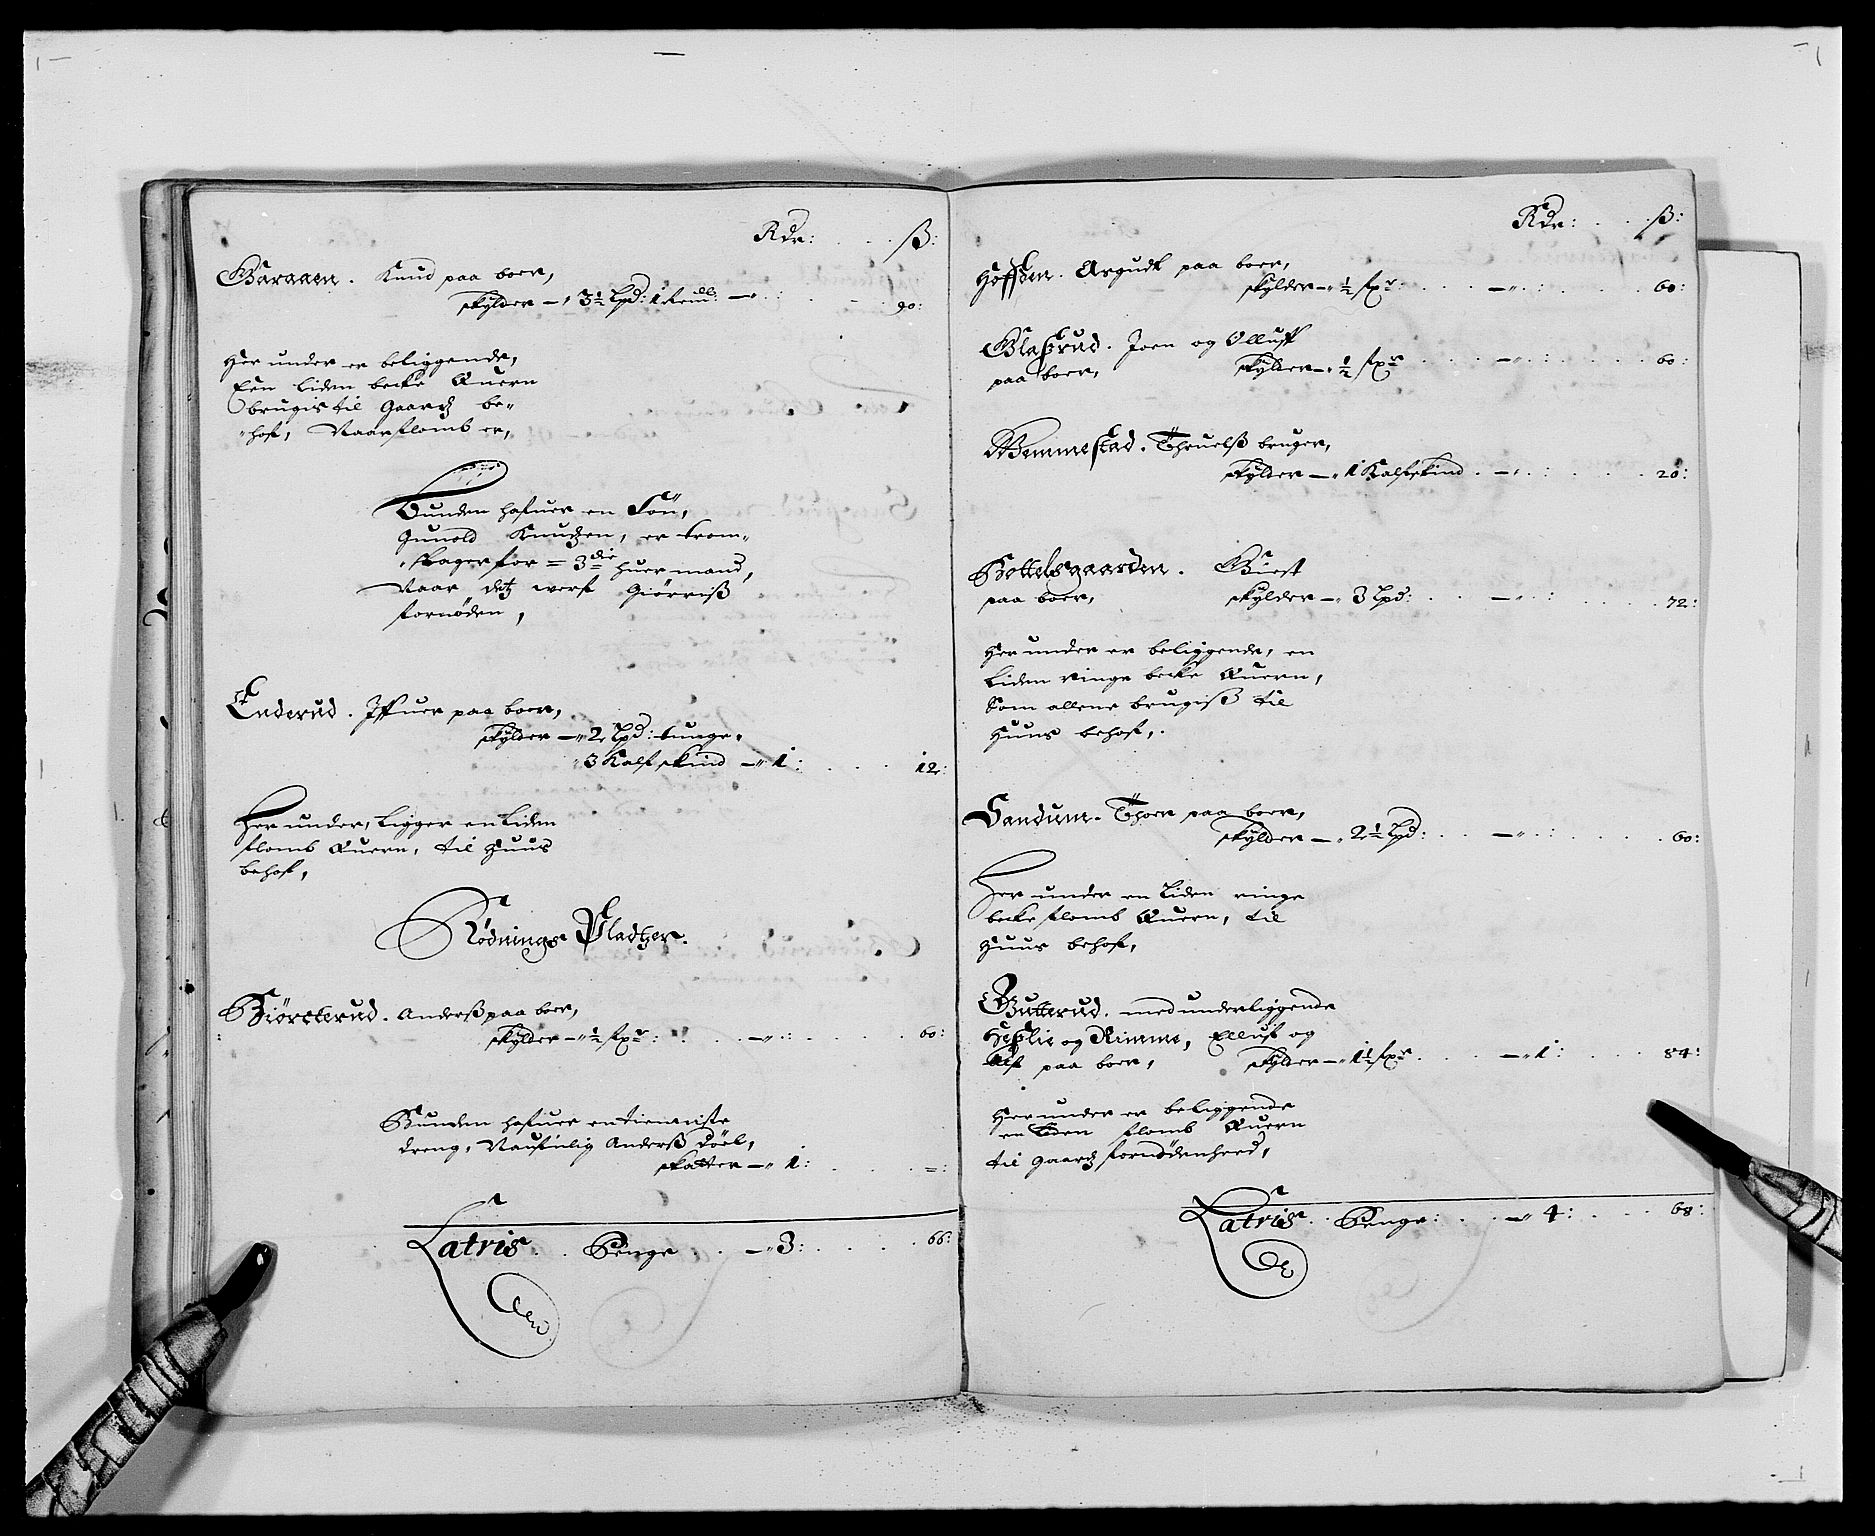 Rdr: ß:
Garaaen. Knud paa boer,
skylder — 3½ lpd: 1 — 90:
Her under er beliggende,
Een liden becke Quern
brugis til Gaardz be-
hof, Naar flomb er,
Bunden hafuer en Sön,
Gunold Knudzen, er trom-
slager for = 3die huer mand,
Naar detz werk Giörriß
fornöden,
Enderud. Iffuer paa boer,
skylder — 2 lpd: tunge,
3 Kalfskind — 1: 12:
Her under, Ligger en Liden
flomb Quern, til Huus
behof,
Rödnings Pladtzer.
Biörcterud. Anderß paa boer,
skylder — ½ fxr: — 60:
Bunden hafuer en tieniste
dreng, Naufnlig Anderß Döel,
skatter — 1: =:
Latris. Penge — 3: 66:
Rdr: ß:
Hoffsen. Asgudt paa boer,
skylder — ½ fxr: — 60:
Glaßrud. Joen og Olluff
paa boer, skylder — ½ fxr — 60:
Wemmestad. Thruelß bruger,
skylder — 1 Kalfskind — 20:
Bottelsgaarden. Giest
paa boer, skylder — 3 lpd: — 72:
Her under er beliggende, en
liden ringe becke Quern,
Som allene brugiß til
Huus behof,
Sandum. Thoer paa boer,
skylder — 2½ lpd: — 60:
Her under en liden ringe
becke flomb Quern, til
Huus behof,
Gutterud. med underliggende
Heßlie og Rimme, Elluf og
Alf paa boer, skylder — 1½ fxr — 1: 84:
Her under er beliggende
en liden flomb Quern
til Gaardz fornödenheed,
Latris. Penge: — 4: 68: